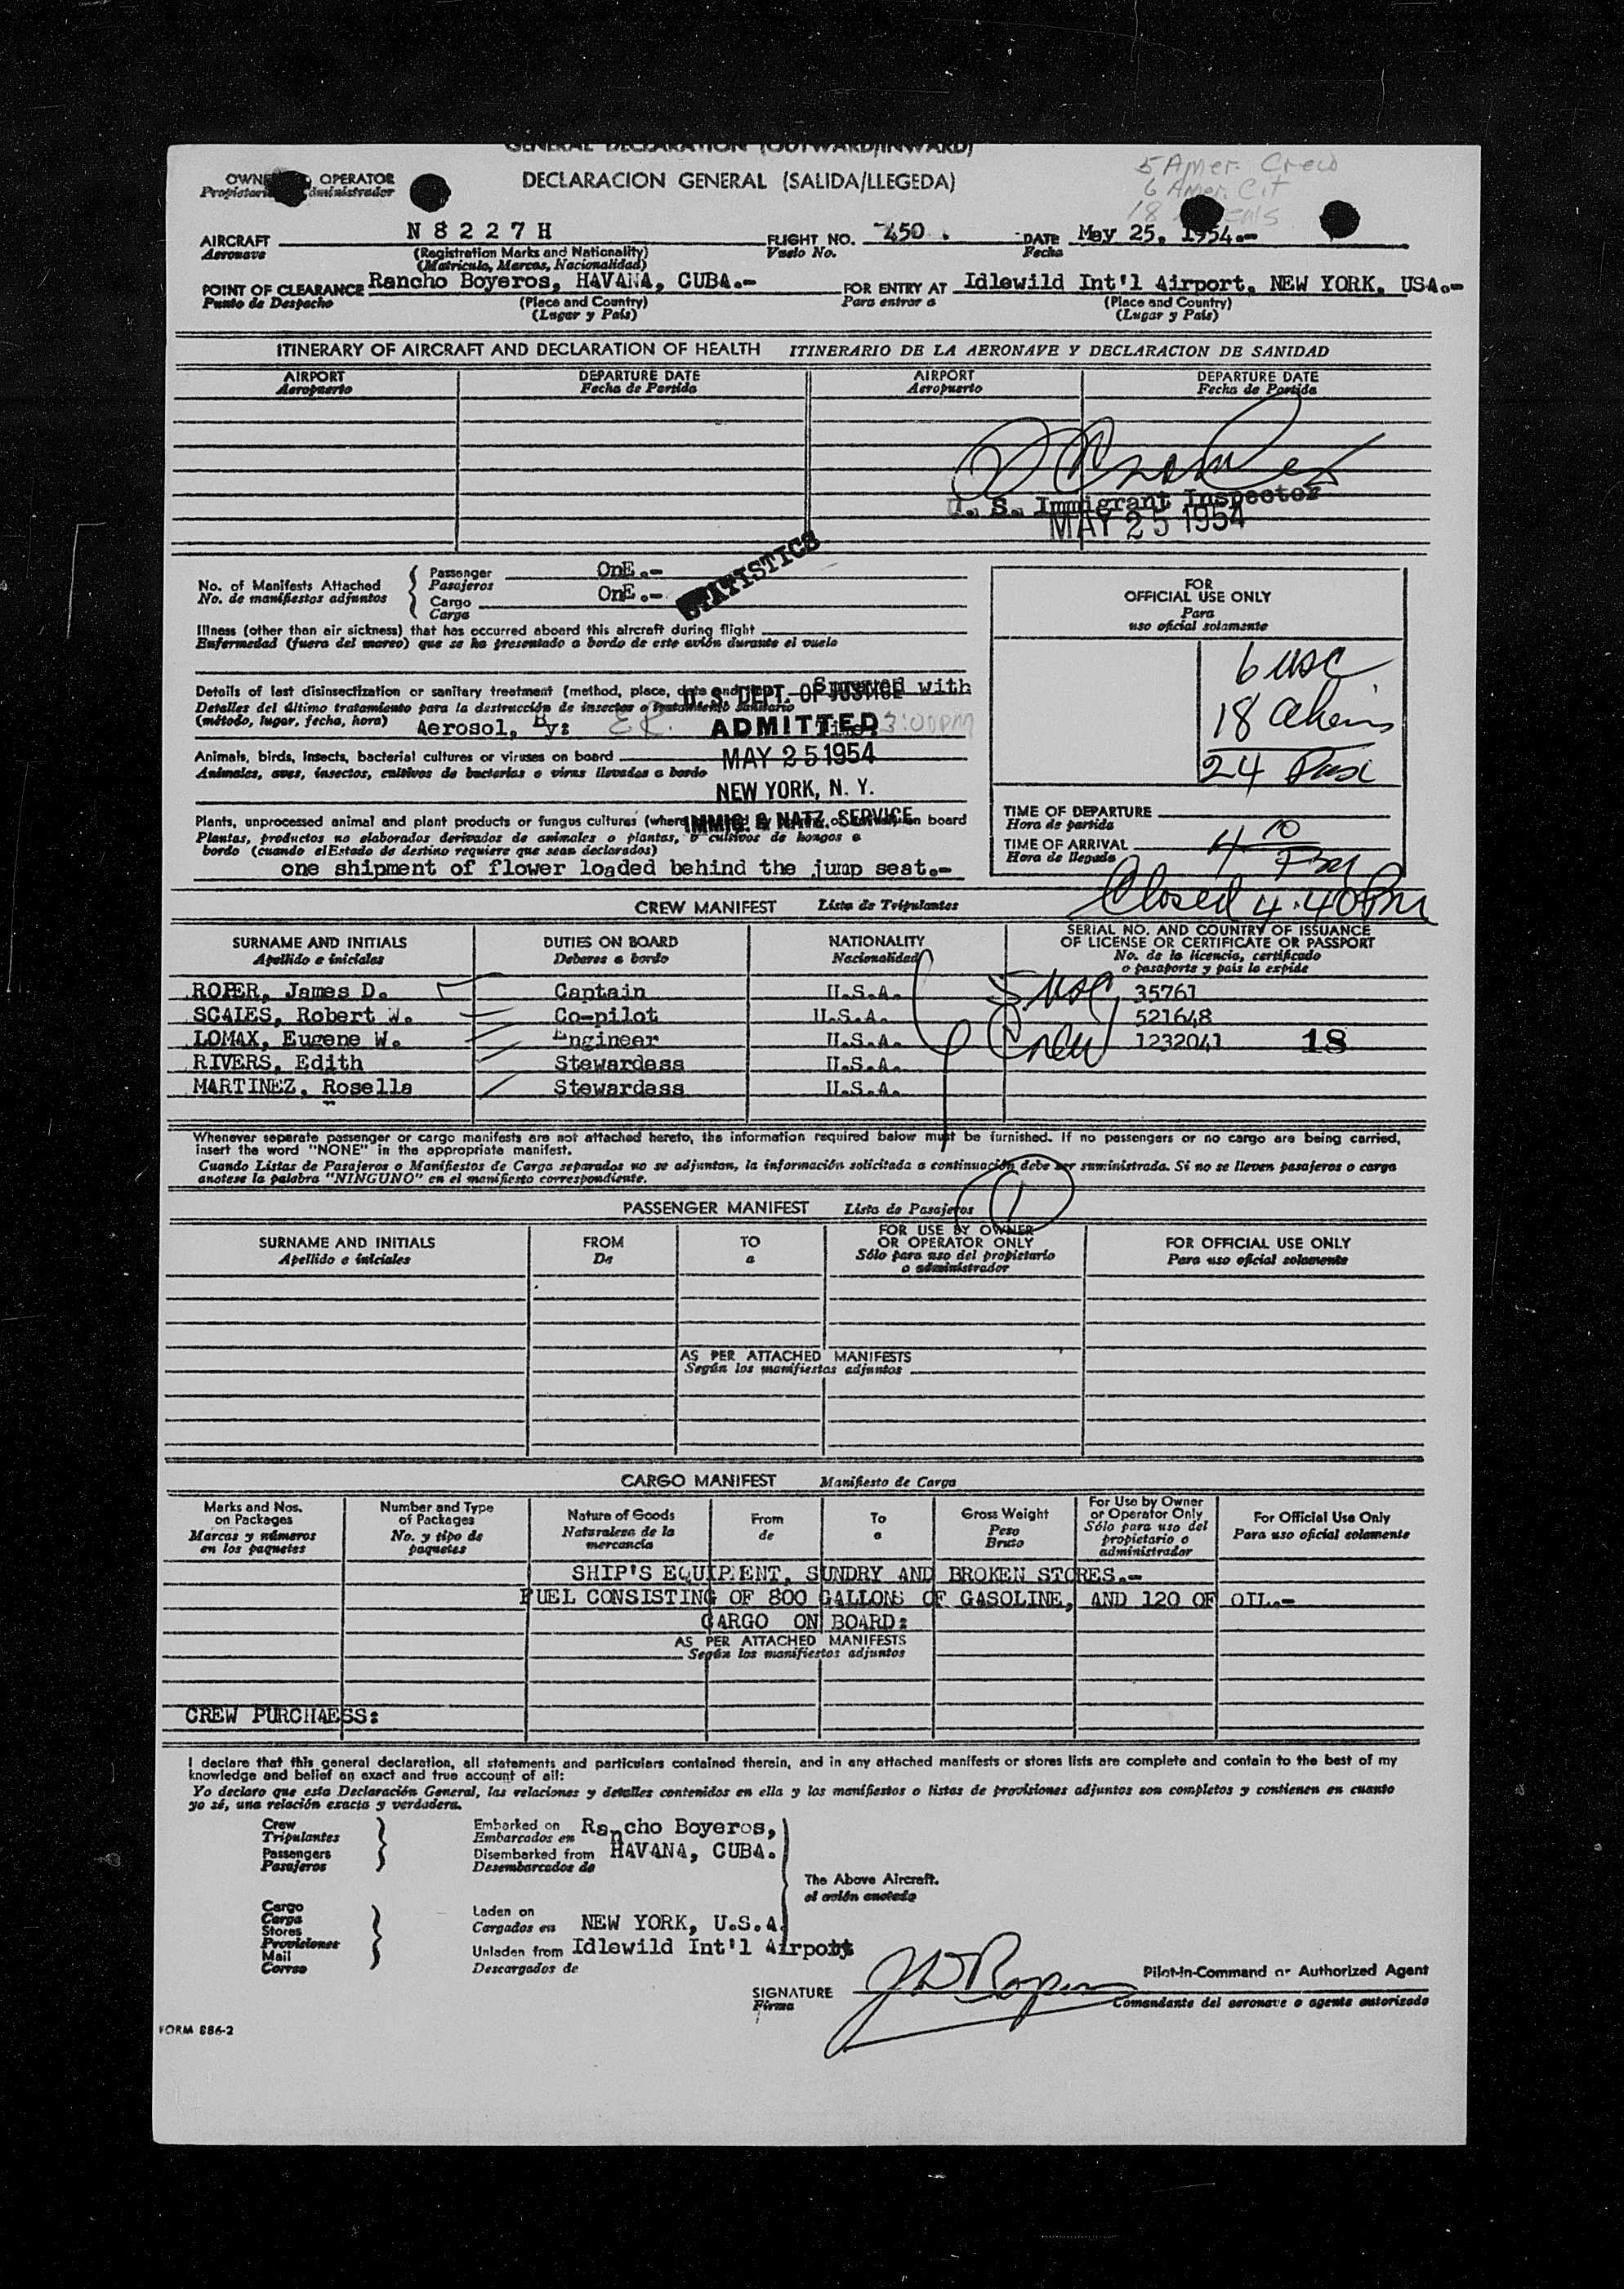 GENERAL DECLARATION (OUTWARD/INWARD)
DECLARACION GENERAL (SALIDA/LLEGEDA)
5 Amer. Crew
6 Amer. Cit
18
OPERATOR
AIRCRAFT N 8 2 2 7 H FLIGHT NO. 450 . DATE May 25, 1954.-
Aeronave (Registration Marks and Nationality) Vuelo No. Fecha
(Matricula, Marcas, Nacionalidad)
POINT OF CLEARANCE Rancho Boyeros, HAVANA, CUBA.- FOR ENTRY AT Idlewild Int'l Airport, NEW YORK, USA.-
Punto de Despacho (Place and Country) Para entrar a (Place and Country)
(Lugar y País) (Lugar y País)
ITINERARY OF AIRCRAFT AND DECLARATION OF HEALTH ITINERARIO DE LA AERONAVE Y DECLARACION DE SANIDAD
AIRPORT DEPARTURE DATE AIRPORT DEPARTURE DATE
Aeropuerto Fecha de Partida Aeropuerto Fecha de Partida
U. S. Immigrant Inspector
MAY 25 1954
STATISTICS
No. of Manifests Attached Passenger OnE.-
No. de manifiestos adjuntos Pasajeros
Cargo OnE.-
Carga
Illness (other than air sickness) that has occurred aboard this aircraft during flight
Enfermedad (fuera del mareo) que se ha presentado a bordo de este avión durante el vuelo
FOR
OFFICIAL USE ONLY
Para
uso oficial solamente
6 USC
18 Aliens
24 Pax
Details of last disinsectization or sanitary treatment (method, place, date and Sprayed with
Detalles del último tratamiento para la destrucción de insectos o tratamiento sanitario
(método, lugar, fecha, hora) Aerosol, By: 3:00PM
U. S. DEPT. OF JUSTICE
ADMITTED
MAY 25 1954
NEW YORK, N. Y.
IMMIG. & NATZ. SERVICE
Animals, birds, insects, bacterial cultures or viruses on board
Animales, aves, insectos, cultivos de bacterias o virus llevados a bordo
Plants, unprocessed animal and plant products or fungus cultures (where on board
Plantas, productos no elaborados derivados de animales o plantas, o cultivos de hongos a
bordo (cuando elEstado de destino requiere que sean declarados)
one shipment of flower loaded behind the jump seat.-
TIME OF DEPARTURE
Hora de partida
TIME OF ARRIVAL 4 10 PM
Hora de llegada
Closed 4:40 PM
CREW MANIFEST Lista de Tripulantes
SURNAME AND INITIALS DUTIES ON BOARD NATIONALITY SERIAL NO. AND COUNTRY OF ISSUANCE
OF LICENSE OR CERTIFICATE OR PASSPORT
Apellido e iniciales Deberes a bordo Nacionalidad No. de la licencia, certificado
o pasaporte y país lo expide
ROPER, James D. Captain U.S.A. 35761
SCALES, Robert W. Co-pilot U.S.A. 521648
LOMAX, Eugene W. Engineer U.S.A. 1232041 18
RIVERS, Edith Stewardess U.S.A.
MARTINEZ, Rosella Stewardess U.S.A.
5 USC
Crew
Whenever separate passenger or cargo manifests are not attached hereto, the information required below must be furnished. If no passengers or no cargo are being carried,
insert the word "NONE" in the appropriate manifest.
Cuando Listas de Pasajeros o Manifiestos de Carga separados no se adjuntan, la información solicitada a continuación debe ser suministrada. Si no se lleven pasajeros o carga
anotese la palabra "NINGUNO" en el manifiesto correspondiente.
1
PASSENGER MANIFEST Lista de Pasajeros
SURNAME AND INITIALS FROM TO FOR USE BY OWNER OR OPERATOR ONLY FOR OFFICIAL USE ONLY
Apellido e iniciales De a Sólo para uso del propietario o administrador Para uso oficial solamente
AS PER ATTACHED MANIFESTS
Según los manifiestos adjuntos
CARGO MANIFEST Manifiesto de Carga
Marks and Nos. on Packages Number and Type of Packages Nature of Goods From To Gross Weight For Use by Owner or Operator Only For Official Use Only
Marcas y números en los paquetes No. y tipo de paquetes Naturaleza de la mercancia de a Peso Bruto Sólo para uso del propietario o administrador Para uso oficial solamente
SHIP'S EQUIPMENT, SUNDRY AND BROKEN STORES.-
FUEL CONSISTING OF 800 GALLONS OF GASOLINE, AND 120 OF OIL.-
CARGO ON BOARD:
AS PER ATTACHED MANIFESTS
Según los manifiestos adjuntos
CREW PURCHAESS:
I declare that this general declaration, all statements and particulars contained therein, and in any attached manifests or stores lists are complete and contain to the best of my
knowledge and belief an exact and true account of all:
Yo declaro que esta Declaración General, las relaciones y detalles contenidos en ella y los manifiestos o listas de provisiones adjuntos son completos y contienen en cuanto
yo sé, una relación exacta y verdadera.
Crew Embarked on Rancho Boyeros,
Tripulantes Embarcados en
Passengers Disembarked from HAVANA, CUBA.
Pasajeros Desembarcados de
The Above Aircraft.
el avión anotado
Cargo Laden on
Carga Cargados en NEW YORK, U.S.A.
Stores
Provisiones Unladen from Idlewild Int'l Airport
Mail Descargados de
Correo
SIGNATURE JD Roper Pilot-in-Command or Authorized Agent
Firma Comandante del aeronave o agente autorizado
FORM 886-2